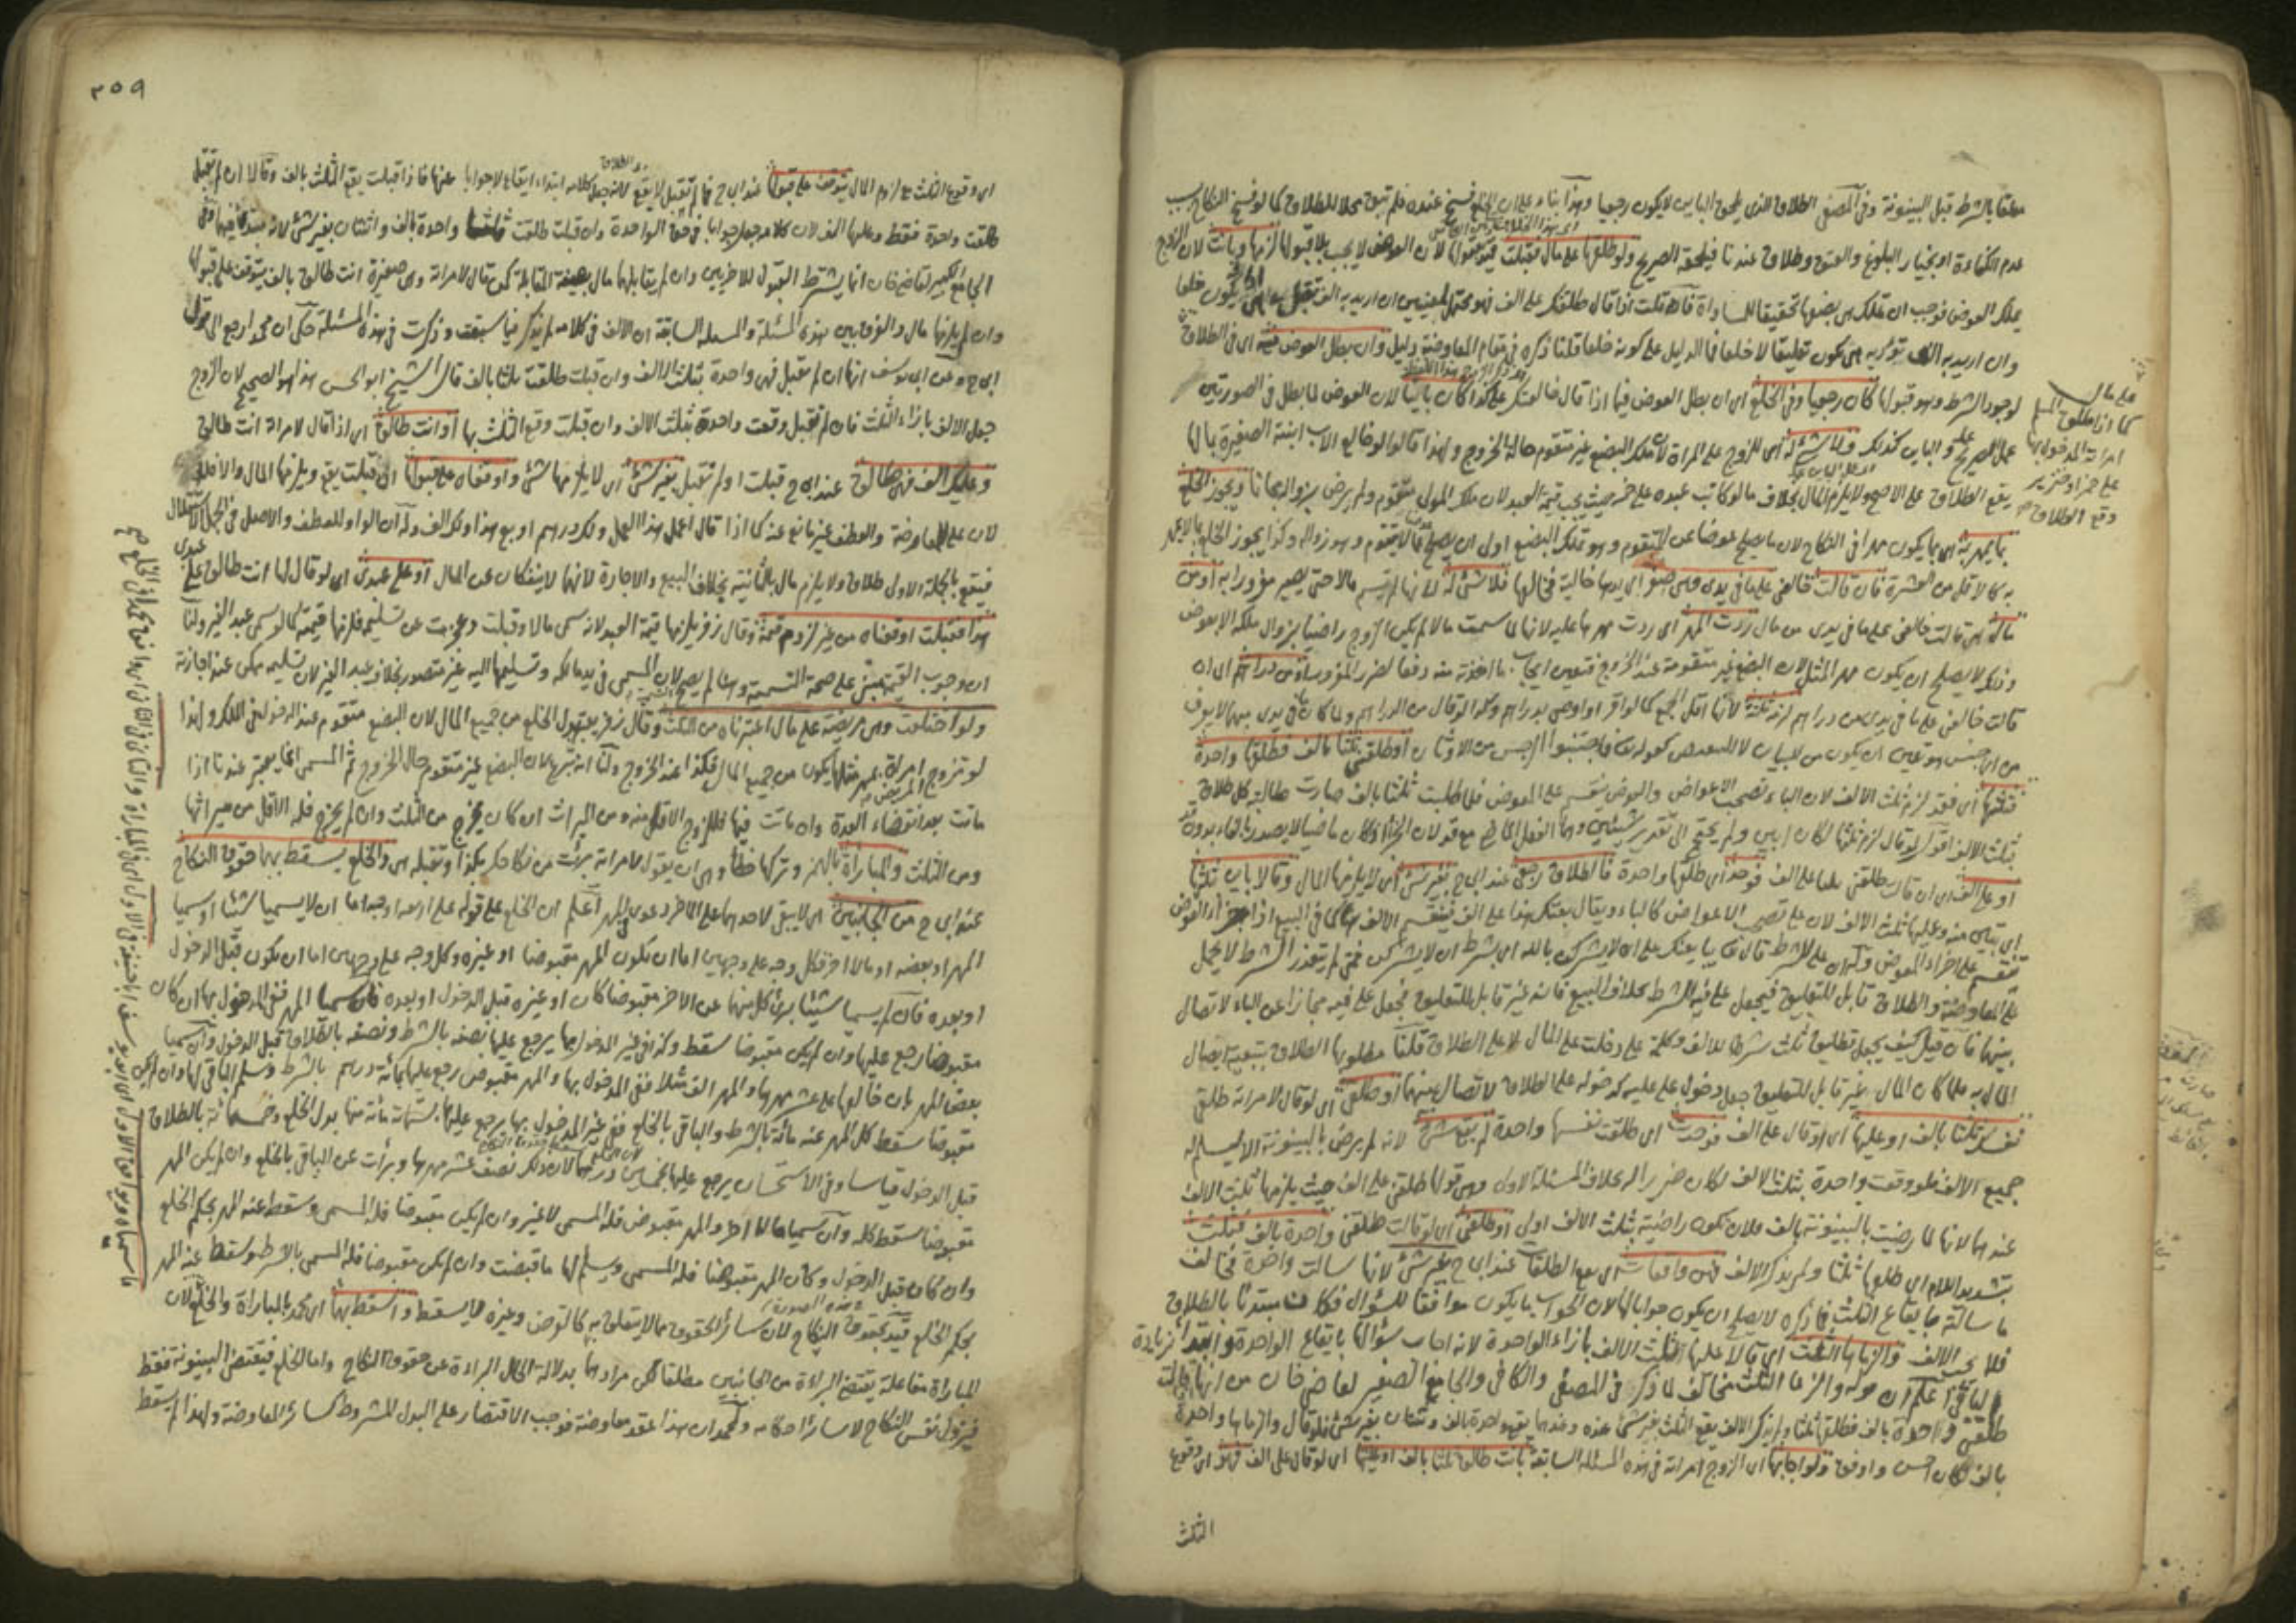 معلقا بالشرط قبل البينونة وفي المصفى الطلاق الذي يلحق الباين لا يكون رجعيا وهذا بناء على ان الخلع فسخ عنده فلم تبق محلا للطلاق كما لو فسخ النكاح بسبب
عدم الكفاءة او بخيار البلوغ والعتق وطلاق عندنا فيلحقه الصريح ولو طلقها على مال فقبلت لان العوض لا يجب بلا قبولها لزمها وبانت لان الزوج
يملك العوض فوجب ان تملك هي بضعها تحقيقا للمساواة فان قلت اذا قال طلقتك على الف فهو محتمل لمعنيين ان اريد به الف يكون خلعا
وان اريد به يكون تعليقا لا خلعا فما الدليل على كونه خلعا قلنا ذكره في مقام المعاوضة دليل وان بطل العوض فيه اي في الطلاق
لوجود الشرط وهو قبولها كان رجعيا وفي الخلع اي ان بطل العوض فيما اذا قال خالعتك على كذا كان باينا لان العوض لما بطل في الصورتين
عمل الصريح عمله والباين كذلك ولا شئ له اي للزوج على المراة لان ملك البضع غير متقوم حالة الخروج ولهذا قالوا لو خالع الاب ابنته الصغيرة بمالها
يقع الطلاق على الاصح ولا يلزم المال بخلاف ما لو كاتب عبده على خمر حيث يجب قيمة العبد لان ملك المولى متقوم ولم يرض بزواله مجانا ويجوز الخلع
بما يمهر به اي بما يكون مهرا في النكاح لان ما يصلح عوضا عن المتقوم وهو تملك البضع اولى ان يصلح عما لا يتقوم وهو زواله وكذا يجوز الخلع بما لا يمهر
به كالاقل من العشرة فان قالت خالعني على ما في يدي وهي صفر اي يدها خالية فخالعها فلا شئ له لانها لم تسم مالا حتى يصير مغرورا به او من
مال اي قالت خالعني على ما في يدي من مال ردت المهر اي ردت مهرها عليه لانها لما سمت مالا لم يكن الزوج راضيا بزوال ملكه الا بعوض
وذلك لا يصلح ان يكون مهر المثل لان البضع غير متقومة عند الخروج فتعين ايجاب ما اخذته منه دفعا لضرر الغرور او من دراهم اي ان
قالت خالعني على ما في يدي من دراهم لزمه ثلثة لانها اقل الجمع كما لو اقر او اوصى بدراهم وكذا لو قال من الدراهم ولما كان ما في يدي مبهما لا يعرف
من اي جنس هو تعين ان يكون من للبيان لا للتبعيض كقوله تعالى فاجتنبوا الرجس من الاوثان او طلقني ثلثا بالف فطلقها واحدة
فثلثها اي فقد لزم ثلث الالف لان الباء تصحب الاعواض والعوض ينقسم على المعوض فلما طلبت ثلثا بالف صارت طالبة كل طلاق
بثلث الالف اقول لو قال لزم ثلثها لكان ابين ولم يحتج الى تقدير شيئين وهما الفعل الماضي مع قد لان الجزاء اذا كان ماضيا لا يصدر بالفاء بدون قد
او على الف اي ان قالت طلقني ثلثا على الف فوحد اي طلقها واحدة فالطلاق رجعي عند ابي ح بغير شئ اي لا يلزمها المال وقالا باين بثلثها
اي تبين منه وعليها ثلث الالف لان على تصحب الاعواض كالباء ويقال بعتك هذا على الف فينقسم الالف كما في البيع اذ اجزاء العوض
تنقسم على اجزاء المعوض وله ان على للشرط قال تعالى يبايعنك على ان لا يشركن بالله اي بشرط ان لا يشركن فمتى لم يتعذر الشرط لا يحمل
على المعاوضة والطلاق قابل للتعليق فيجعل على فيه للشرط بخلاف البيع فانه غير قابل للتعليق فجعل على فيه مجازا عن الباء لاتصال
بينهما فان قيل كيف يجعل تطليق ثلث شرطا للالف وكلمة على دخلت على المال لا على الطلاق قلنا مطلوبها الطلاق بتبعية ايصال
المال به فلما كان المال غير قابل للتعليق جعل دخول على عليه كدخوله على الطلاق لاتصال بينهما او طلقي اي لو قال لامراته طلقي
نفسك ثلثا بالف او عليها اي او قال على الف فوحدت اي طلقت نفسها واحدة لم يقع شئ لانه لم يرض بالبينونة الا ليسلم له
جميع الالف فلو وقعت واحدة بثلث الالف لكان ضررا له بخلاف المسئلة الاولى وهي قولها طلقني على الف حيث يلزمها ثلث الالف
عندهما لانها لما رضيت بالبينونة بالف فلان تكون راضية بثلث الالف اولى او طلقني اي لو قالت طلقني واحدة بالف فثلث
بتشديد اللام اي طلقها ثلثا ولم يذكر الالف فهن واقعات اي يقع الطلقات عند ابي ح بغير شئ لانها سالت واحدة فخالف
ما سالته بايقاع الثلث فما ذكره لا يصلح ان يكون جوابا لها لان الجواب ما يكون موافقا للسؤال فكان مبتدئا بالطلاق
فلا يجب الالف والزماها الثلث اي قالا عليها الثلث الالف بازاء الواحدة لانه اجاب سؤالها بايقاع الواحدة وابتدا بزيادة
الباقي اعلم ان قوله والزما الثلث مخالف لما ذكر في المصفى والكافي والجامع الصغير لقاضي خان من انها قالت
طلقني واحدة بالف فطلقها ثلثا ولم يذكر الالف يقع الثلث بغير شئ عنده وعندهما يقع واحدة بالف وثنتان بغير شئ فلو قال والزماها واحدة
بالف لكان احسن واوفق ولو اجابها اي الزوج امراته في هذه المسئلة السابقة بانت طالق ثلثا بالف او عليها اي لو قال على الف فهو اي وقوع
الثلث
على مال
كما اذا طلق المسلم
امراته المدخول بها
على خمر او خنزير
وقع الطلاق
٣٥٩
اي وقوع الثلث مع لزوم المال يتوقف على قبولها عند ابي ح فما لم تقبل لا يقع لانه جعل كلامه ابتداء ايقاع لا جوابا عنها فاذا قبلت يقع الثلث بالف وقالا ان لم تقبل
طلقت واحدة فقط وعليها الف لان كلامه جعل جوابا في حق الواحدة وان قبلت طلقت ثلثا واحدة بالف واثنتان بغير شئ لانه مبتدئ فيهما وفي
الجامع الكبير لقاضي خان انما يشترط القبول للاخريين وان لم يقابلهما مال بصيغة المقابلة كمن قال لامراته وهي صغيرة انت طالق بالف يتوقف على قبولها
وان لم يلزمها مال والفرق بين هذه المسئلة والمسئلة السابقة ان الالف في كلامه لم يذكر فيما سبقت وذكرت في هذه المسئلة حكي ان محمدا رجع الى قول
ابي ح وعن ابي يوسف انها ان لم تقبل فهي واحدة بثلث الالف وان قبلت طلقت ثلثا بالف قال الشيخ ابو الحسن هذا هو الصحيح لان الزوج
جعل الالف بازاء الثلث فان لم تقبل وقعت واحدة بثلث الالف وان قبلت وقع الثلث بها او انت طالق اي اذا قال لامراته انت طالق
وعليك الف فهي طالق عند ابي ح قبلت او لم تقبل بغير شئ اي لا يلزمها شئ واوقفاه على قبولها اي ان قبلت يقع ويلزمها المال والا فلا
لان على للمعاوضة والعطف غير مانع عنه كما اذا قال اعمل هذا العمل ولك درهم او بع هذا ولك الف وله ان الواو للعطف والاصل في الجمل الاستقلال
فيقع بالجملة الاولى طلاق ولا يلزم مال بالثانية بخلاف البيع والاجارة لانهما لا ينفكان عن المال او على عبدي اي لو قال لها انت طالق على عبدي
هذا فقبلت اوقعناه من غير لزوم قيمة وقال زفر يلزمها قيمة العبد لانه سمى مالا وقبلت وعجزت عن تسليمه فلزمها قيمته كما لو سمى عبد الغير ولنا
ان وجوب القيمة يبتنى على صحة التسمية وهنا لم يصح لان المسمى في يد مالكه وتسليمها اليه غير متصور بخلاف عبد الغير لان تسليمه ممكن عند اجازته
ولو اختلعت وهي مريضة على مال اعتبرناه من الثلث وقال زفر يعتبر بدل الخلع من جميع المال لان البضع متقوم عند الدخول في الملك ولهذا
لو تزوج امراة بمهر مثلها يكون من جميع المال فكذا عند الخروج ولنا انه تبرع لان البضع غير متقوم حال الخروج ثم المسمى انما يعتبر عندنا اذا
ماتت بعد انقضاء العدة وان ماتت فيها فللزوج الاقل منه ومن الميراث ان كان يخرج من الثلث وان لم يخرج فله الاقل من ميراثها
ومن الثلث والمباراة بالهمز وتركها خطأ وهي ان يقول لامراته برئت من نكاحك بكذا وتقبله هي والخلع يسقط بهما حقوق النكاح
عند ابي ح من الجانبين اي لا يبقى لاحدهما على الاخر دعوى في المهر اعلم ان الخلع على قوله على اربعة اوجه اما ان لا يسميا شيئا او سميا
المهر او بعضه او مالا اخر فكل وجه على وجهين اما ان يكون المهر مقبوضا او غيره وكل وجه على وجهين اما ان يكون قبل الدخول
او بعده فان لم يسميا شيئا برئ كل منهما عن الاخر مقبوضا كان او غيره قبل الدخول او بعده فان سميا المهر ففي المدخول بها ان كان
مقبوضا رجع عليها وان لم يكن مقبوضا سقط وكذا في غير المدخول بها يرجع عليها نصفه بالشرط ونصفه بالطلاق قبل الدخول وان سميا
بعض المهر بان خالعها على عشر مهرها والمهر الف مثلا ففي المدخول بها والمهر مقبوض رجع عليها بمائة درهم بالشرط وسلم الباقي لها وان لم يكن
مقبوضا سقط كل المهر عنه مائة بالشرط والباقي بالخلع ففي غير المدخول بها يرجع عليها بستمائة مائة منها بدل الخلع وخمسمائة بالطلاق
قبل الدخول قياسا وفي الاستحسان يرجع عليها بخمسين درهما لان ذلك نصف عشر مهرها وبرأت عن الباقي بالخلع وان لم يكن المهر
مقبوضا سقط كله وان سميا مالا اخر والمهر مقبوض فله المسمى لا غير وان لم يكن مقبوضا فله المسمى وسقط عنه المهر بحكم الخلع
وان كان قبل الدخول وكان المهر مقبوضا فله المسمى ويسلم لها ما قبضت وان لم يكن مقبوضا فله المسمى بالشرط وسقط عنه المهر
بحكم الخلع قيد بحقوق النكاح لان سائر الحقوق مما لا يتعلق به كالقرض وغيره لا يسقط واسقط بها اي محمد بالمباراة والخلع لان
المباراة مفاعلة يقتضي البراءة من الجانبين مطلقا لكن مرادهما بدلالة الحال البراءة عن حقوق النكاح واما الخلع فيقتضي البينونة فقط
فيزول نفس النكاح لا سائر احكامه ولمحمد ان هذا عقد معاوضة فوجب الاقتصار على البدل المشروط كسائر المعاوضة ولهذا لم يسقط